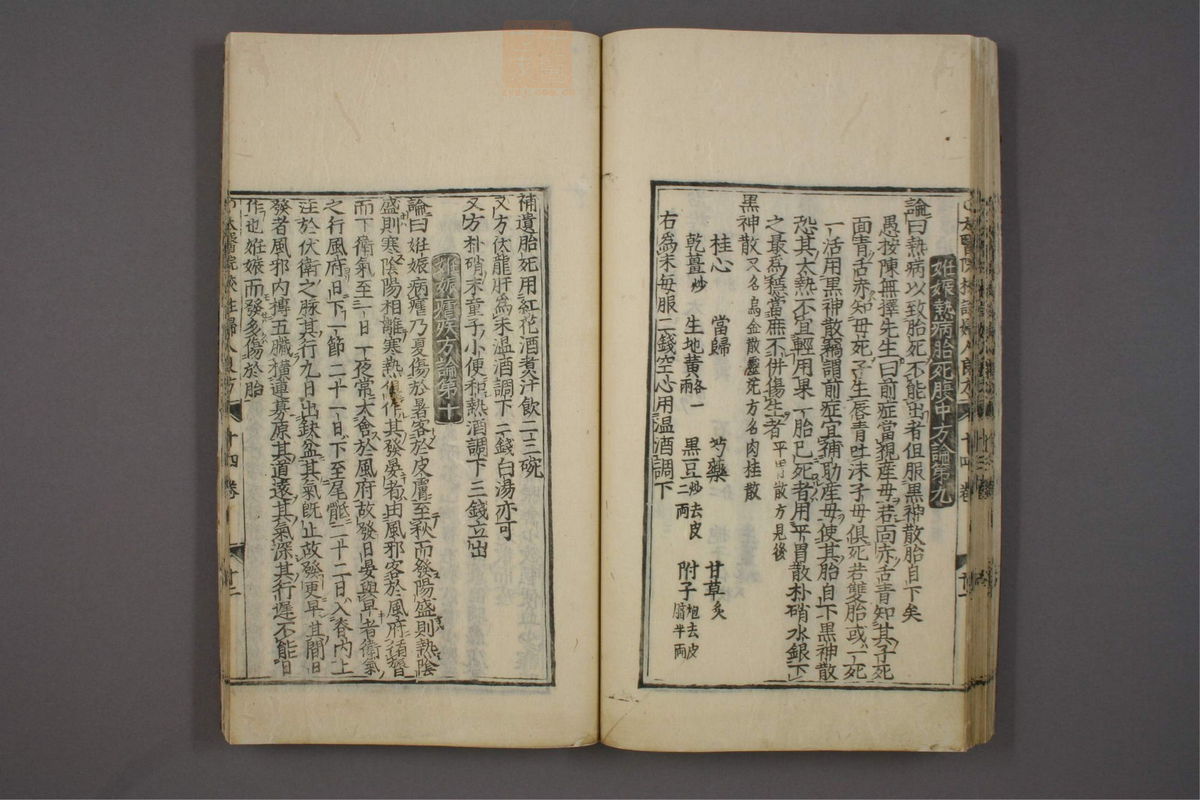 妊娠熱病胎死腹中方論第九
論曰熱病以致胎死不能出者但服黑神散胎自下矣
愚按陳無擇先生曰前症當視産母若面赤舌青知其子死
面青舌赤知母死子生唇青吐沫子母俱死若雙胎或一死
一活用黑神散竊謂前症宜補助産母使其胎自下黑神散
恐其太熱不宜輕用果一胎已死者用平胃散朴硝水銀下
之最為穩當庶不併傷生者平胃散方見後
黑神散又名烏金散 方名肉桂散
桂心 當歸 芍藥 甘草炙
乾薑炒 生地黃各一兩 黑豆炒去皮二兩 附子炮去皮臍半兩
右為末每服二錢空心用温酒調下
十四卷
補遺胎死用紅花酒煑汁飲二三碗
又方伏龍肝為末温酒調下二錢白湯亦可
又方朴硝末童子小便和熱酒調下三錢立出
妊娠瘧疾方論第十
論曰妊娠病瘧乃夏傷於暑客於皮膚至秋而發陽盛則熱陰
盛則寒陰陽相離寒熱俱作其發晏者由風邪客於風府循膂
而下衛氣至一日一夜常大會於風府故發日晏與早者衛氣
之行風府日下一節二十一日下至尾骶二十二日入脊内上
注於伏衛之脉其行九日出缺盆其氣既止故發更早其間日
發者風邪内摶五臟横連募原其道遠其氣深其行遲不能日
作也妊娠而發多傷於胎
十四卷